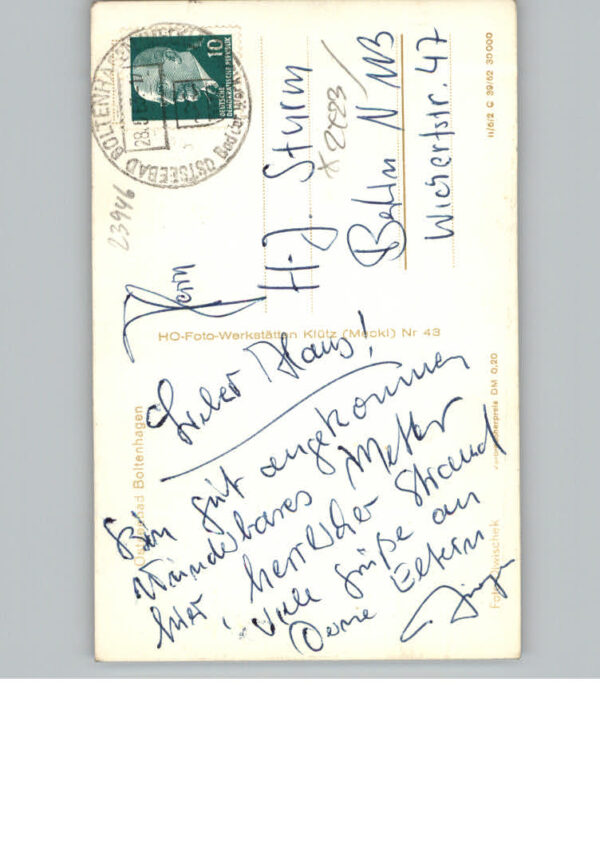 BOLTENHAGEN
OSTSEEBAD
28.8.
10
DEUTSCHE
DEMOKRATISCHE REPUBLIK
23946
Herrn
H-J. Sturm
* 2423 /
Berlin N 113
Wichertstr. 47
11/6/2 G 39/62 30000
HO-Foto-Werkstätten Klütz (Meckl) Nr 43
Ostseebad Boltenhagen
Verbraucherpreis DM 0,20
Lieber Klaus!
Bin gut angekommen
Wunderbares Wetter
hier, herrlicher Strand
Viele Grüße an
Deine Eltern
Jürgen